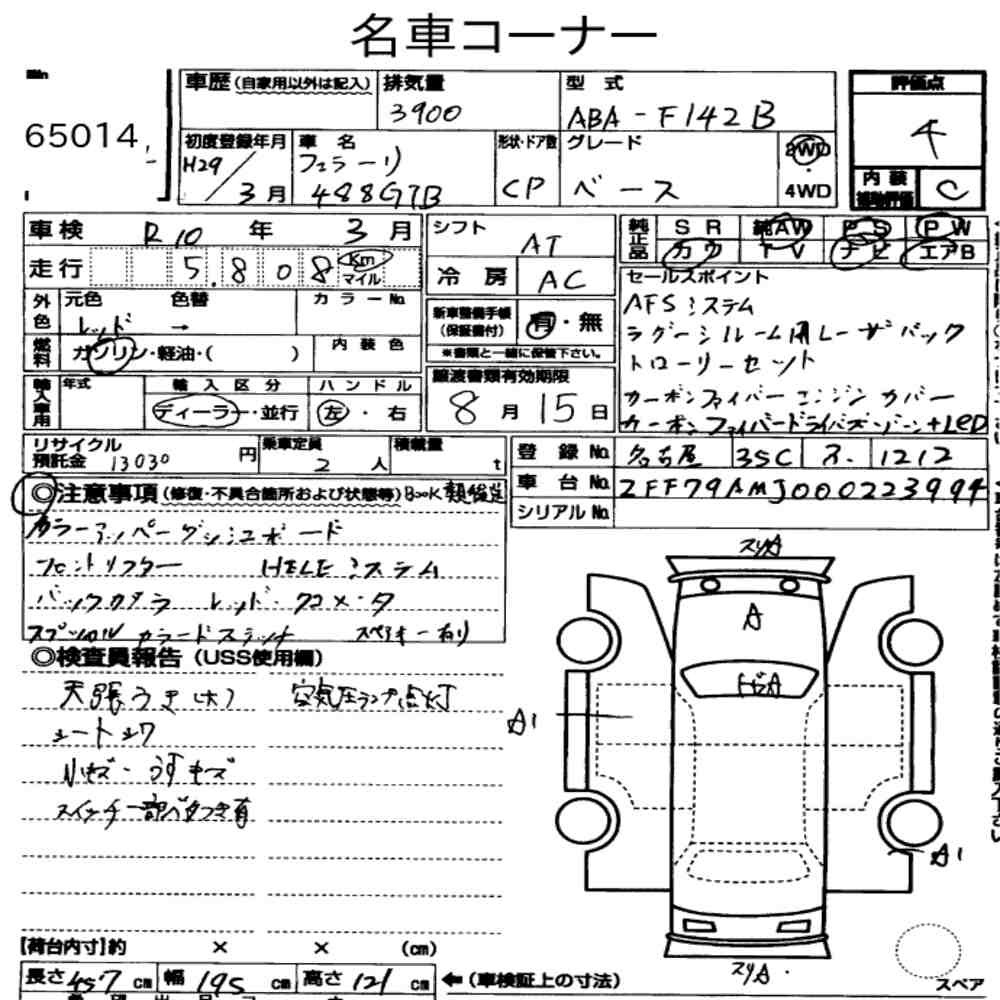 名車コーナー
65014
車歴 (自家用以外は記入) 排気量 型式 評価点
3900 ABA-F142B 4
初度登録年月 車名 形状・ドア数 グレード 2WD
H29 フェラーリ
/3月 488GTB CP ベース 4WD 内装 C
車検 R10 年 3月 シフト AT 純正品 SR 純AW PS PW
走行 5.808 Km マイル カワ TV ナビ エアB
冷房 AC セールスポイント
外色 元色 色替 カラーNo. AFSシステム
レッド → 新車整備手帳 (保証書付) 有・無 ラグーシルーム用レーザバック
燃料 ガソリン・軽油・( ) 内装色 ※書類と一緒に保管下さい。 トローリーセット
輸入車用 年式 輸入区分 ハンドル 譲渡書類有効期限 カーボンファイバーエンジンカバー
ディーラー・並行 左・右 8月15日 カーボンファイバードライバーズゾーン+LED
リサイクル預託金 13030円 乗車定員 2人 積載量 t 登録No. 名古屋 35C ス 1212
車台No. ZFF79AMJ000223994
シリアルNo.
◎注意事項 (修復・不具合箇所および状態等) BOOK
カラーアッパーダッシュボード
フロントリフター HELEシステム
バックカメラ レッド・タコメータ
スペシャルカラードステッチ スペアキー有り
◎検査員報告 (USS使用欄)
天張うき(大) 空気圧ランプ点灯
シートシワ
小キズ・うすキズ
スイッチ一部ベタつき有
スリA
A
トビA
A1
A1
スリA.
スペア
【荷台内寸】約 × × (cm)
長さ 457cm 幅 195cm 高さ 121cm ←(車検証上の寸法)